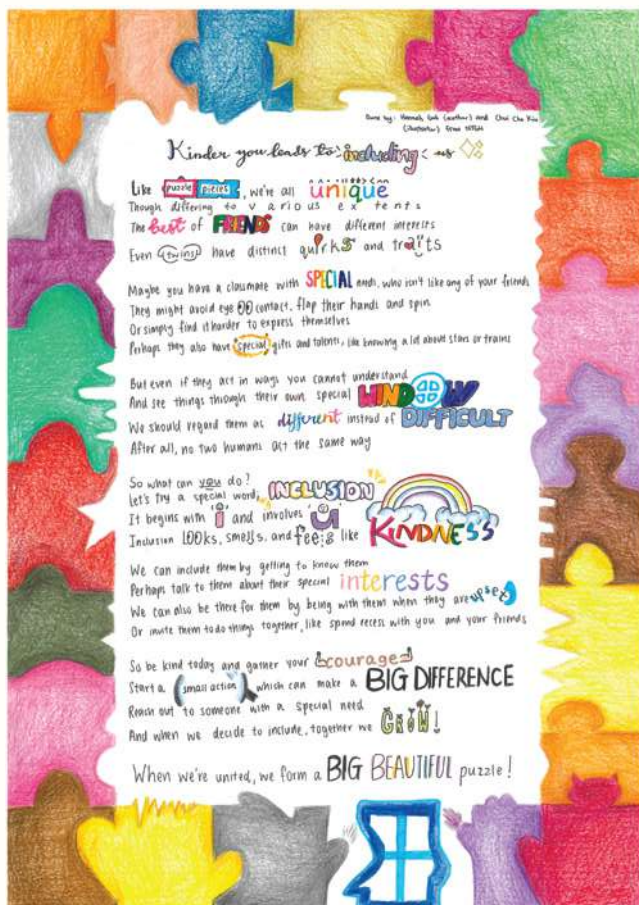 Done by: Hannah Goh (author) and Chui Cha Kin
(illustrator) from NTGH
Kinder you leads to including us
Like puzzle pieces, we're all unique
Though differing to various extents
The best of FRIENDS can have different interests
Even (twins) have distinct quirks and traits
Maybe you have a classmate with SPECIAL needs, who isn't like any of your friends
They might avoid eye contact, flap their hands and spin
Or simply find it harder to express themselves
Perhaps they also have special gifts and talents, like knowing a lot about stars or trains
But even if they act in ways you cannot understand
And see things through their own special WINDOW
We should regard them as different instead of DIFFICULT
After all, no two humans act the same way
So what can you do?
Let's try a special word, INCLUSION
It begins with i and involves U
Inclusion looks, smells, and feels like KINDNESS
We can include them by getting to know them
Perhaps talk to them about their special interests
We can also be there for them by being with them when they are upset
Or invite them to do things together, like spend recess with you and your friends
So be kind today and gather your courage
Start a (small action), which can make a BIG DIFFERENCE
Reach out to someone with a special need
And when we decide to include, together we GROW!
When we're united, we form a BIG BEAUTIFUL puzzle!